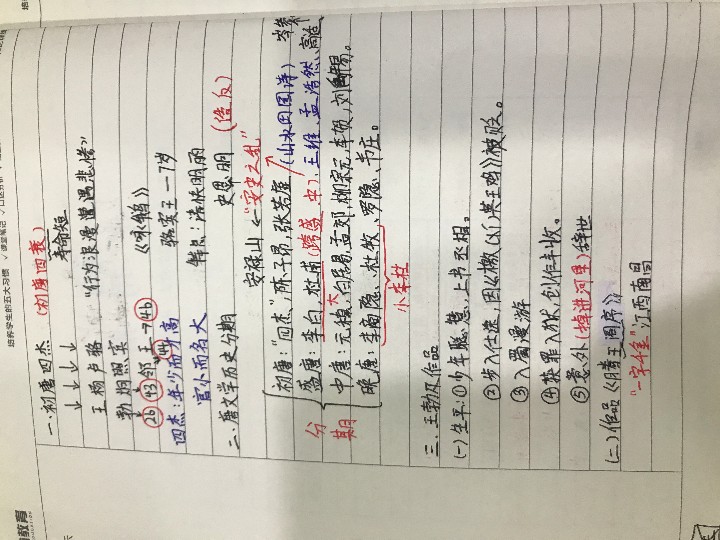 培养学生的五大习惯 √课堂笔记
一.初唐四杰 (初唐四教)
↓ ↓ ↓ ↓ 寿命短
王 杨 卢 骆 “行为浪漫遭遇悲惨”
勃 炯 照 宾
26 43 邻 王→46 《咏鹅》
44 骆宾王—7岁
四杰:年少而才高 特点:浩快明丽
官小而名大 史思明 (造反)
二.唐文学历史分期 安禄山 ← “安史之乱”
初唐:“四杰”,陈子昂,张若虚 (山水田园诗) 岑参
盛唐:李白,杜甫(跨盛、中),王维,孟浩然、高适
分期
中唐:元稹,白居易,孟郊,柳宗元,李贺,刘禹锡。
大
晚唐:李商隐、杜牧、罗隐、韦庄。
小李杜
三.王勃及作品
(一)生平:①少年聪慧,上书丞相。
②步入仕途,因《檄〈英王鸡〉》被贬。
③入蜀漫游
④获罪入狱,创作丰收。
⑤意外(掉进河里)辞世
(二)作品《滕王阁序》
“一字千金” 江西南昌
教育